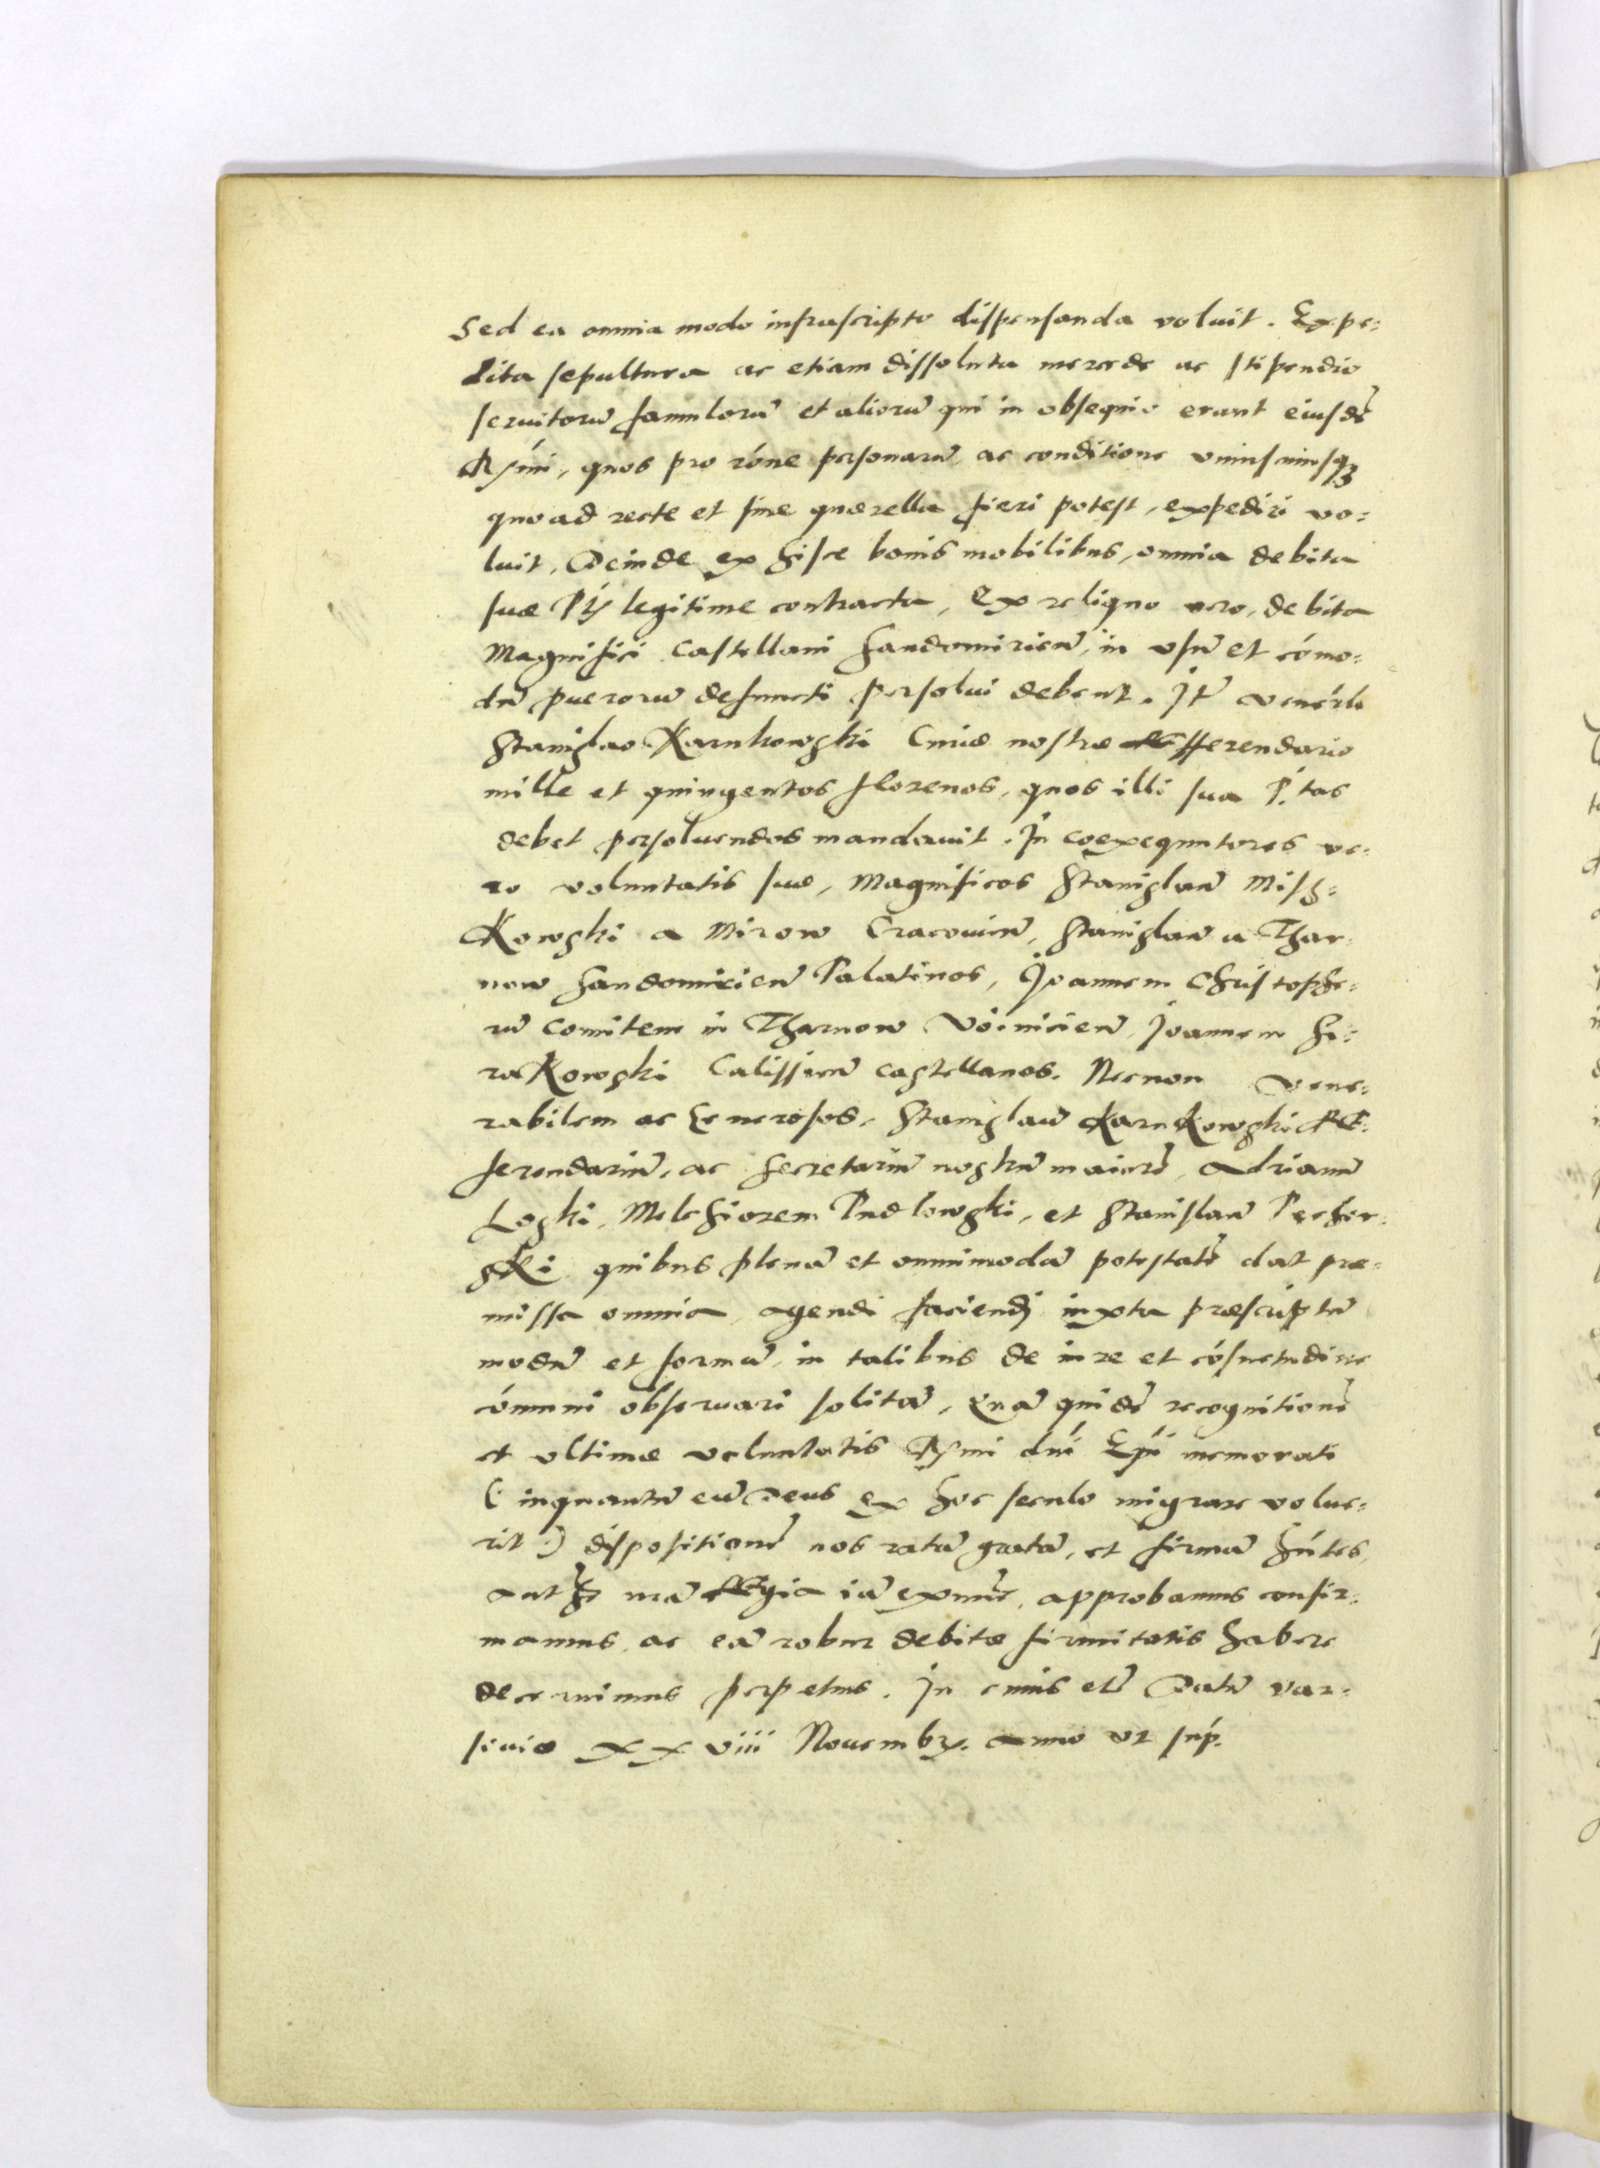 Sed ea omnia modo infrascripto dispensanda voluit. Expe:
dita sepultura ac etiam dissoluta mercede ac stipendio
seruitorũ famulorũ et aliorũ qui in obsequio erant eiusdẽ
Rs̃mi, quos pro rõne personarũ, ac conditione vniuscuiusq3
quoad recte et sine quærella fieri potest, expediri vo:
luit, Deinde ex hisce bonis mobilibus, omnia debita
suæ Ptis legitime contracta, Ex reliquo vero, debita
Magnifici Castellani Sandomirieñ, in vsũ et cõmo:
dũ puerorũ defuncti persolui debent. Itẽ venerli
Stanislao Karnkowski Curiæ nostræ Refferendario
mille et quingentos florenos, quos illi sua P. tas
debet persoluendos mandauit. In coexequutores ve:
ro voluntatis suæ, Magnificos Stanislaũ Misz:
Kowski a Mirow Cracouieñ, Stanislaũ a Thar
now Sandomirieñ Palatinos, Joannem Christophe:
rũ Comitem in Tharnow Voinicieñ, Joannem Si:
raKowski Calissieñ castellanos. Necnon vene:
rabilem ac Generosos, Stanislaũ KarnKowski Re:
ferendariũ, ac Secretariũ nostrũ maiorẽ, Adrianũ
Loski, Melchiorem Pudlowski, et Stanislaũ Pecher:
sKi quibus plenã et omnimodã potestatẽ dat præ:
missa omnia, agendi faciendi iuxta præscriptũ
modũ et formã, in talibus de iure et cõsuetudine
cõmuni obseruari solitã, Quã quidẽ recognitionẽ
et vltimæ voluntatis Rs̃mi dñi Epĩ memorati
(: inquantũ eũ Deus ex hoc seculo migrare volue:
rit :) dispositionẽ nos ratã gratã, et firmã hñtes,
auth̃te nrã Regia iã exnunc, approbamus confir:
mamus, ac eã robur debitæ firmitatis habere
decernimus perpetuo. In cuius etc̃ Datũ Var:
sauiæ XX viii Nouembr. Anno vt sup.